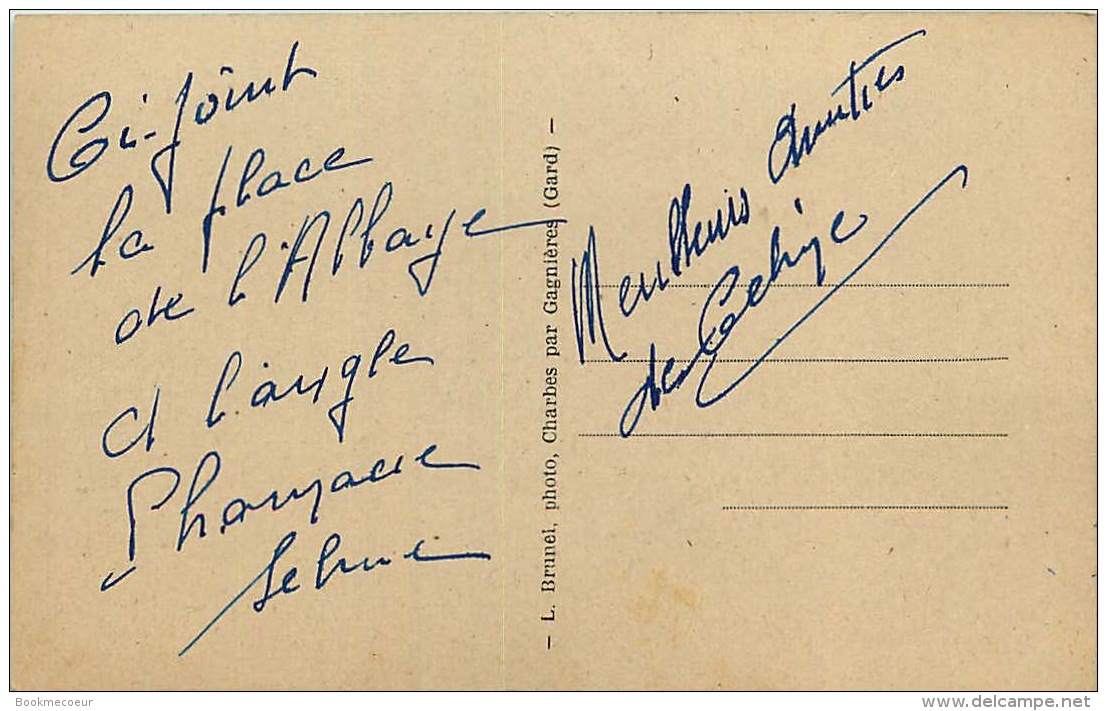 Ci-joint
la place
de l'Abbaye
à l'angle
Pharmacie
Meilleurs Amitiés
de
— L. Brunel, photo, Charbes par Gagnières (Gard) —
Bookmecoeur
www.delcampe.net